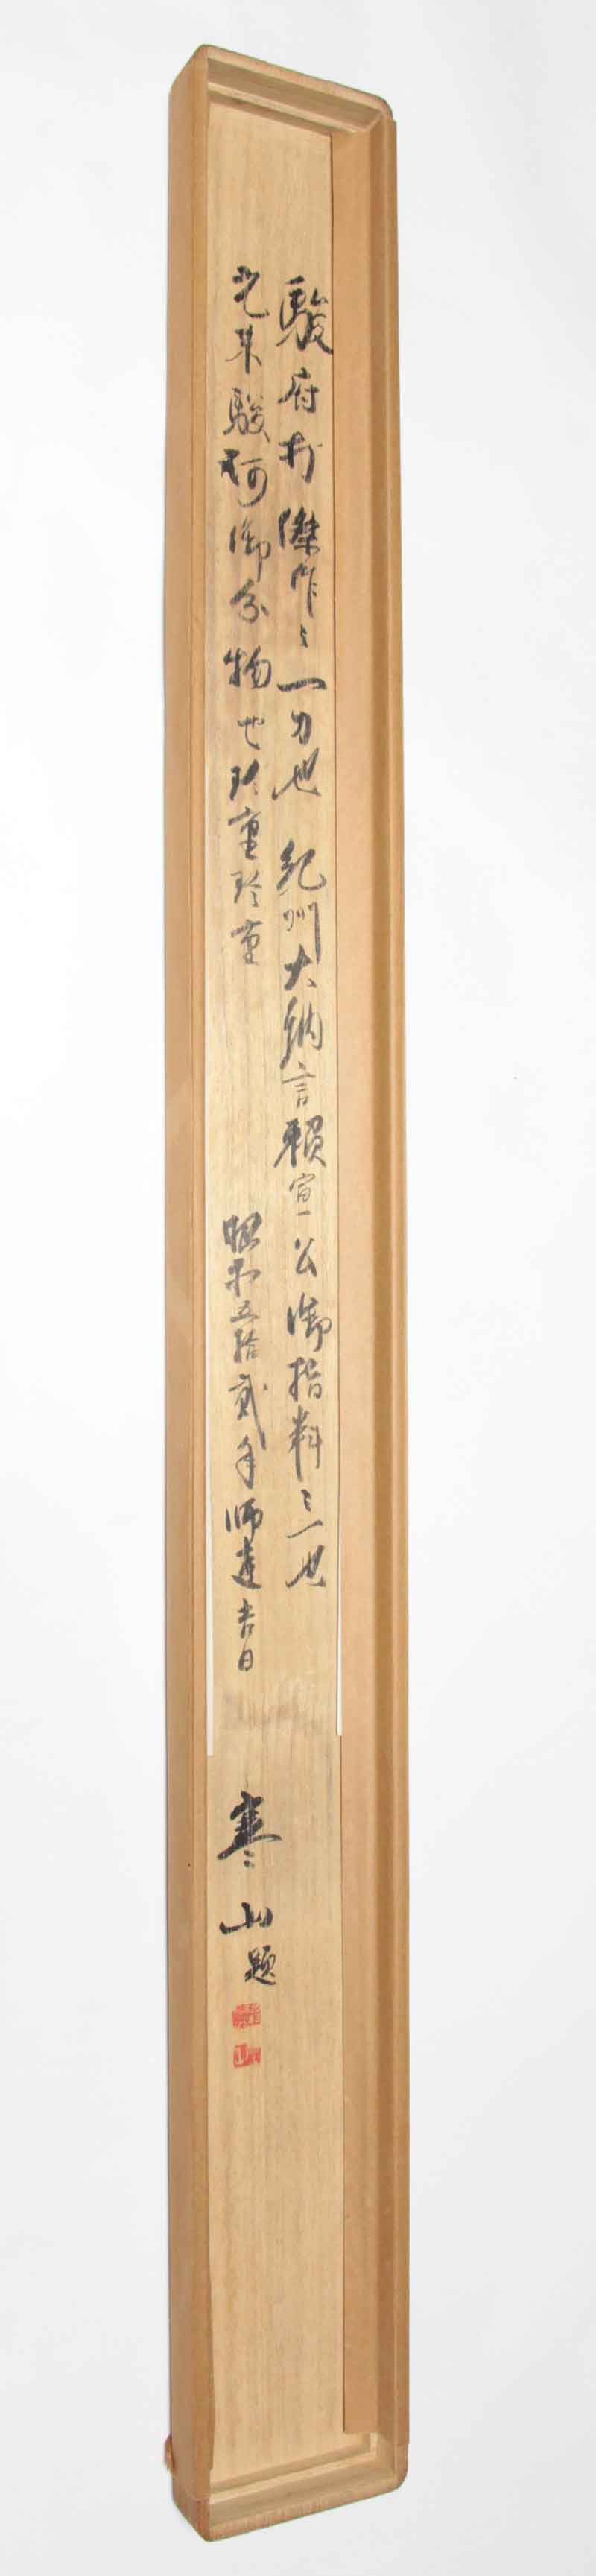 駿府打傑作之一刀也 紀州大納言頼宣公御指料之一也
光来駿河御分物也珍重珍重
昭和五拾貳年師走吉日
寒山題